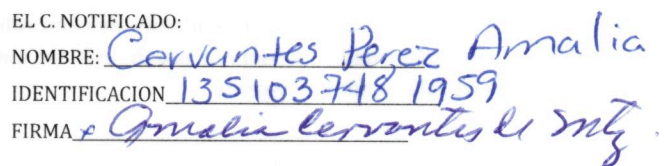 EL C. NOTIFICADO:
NOMBRE: Cervantes Perez Amalia
IDENTIFICACION 135103748 1959
FIRMA x Amalia Cervantes de Mtz.